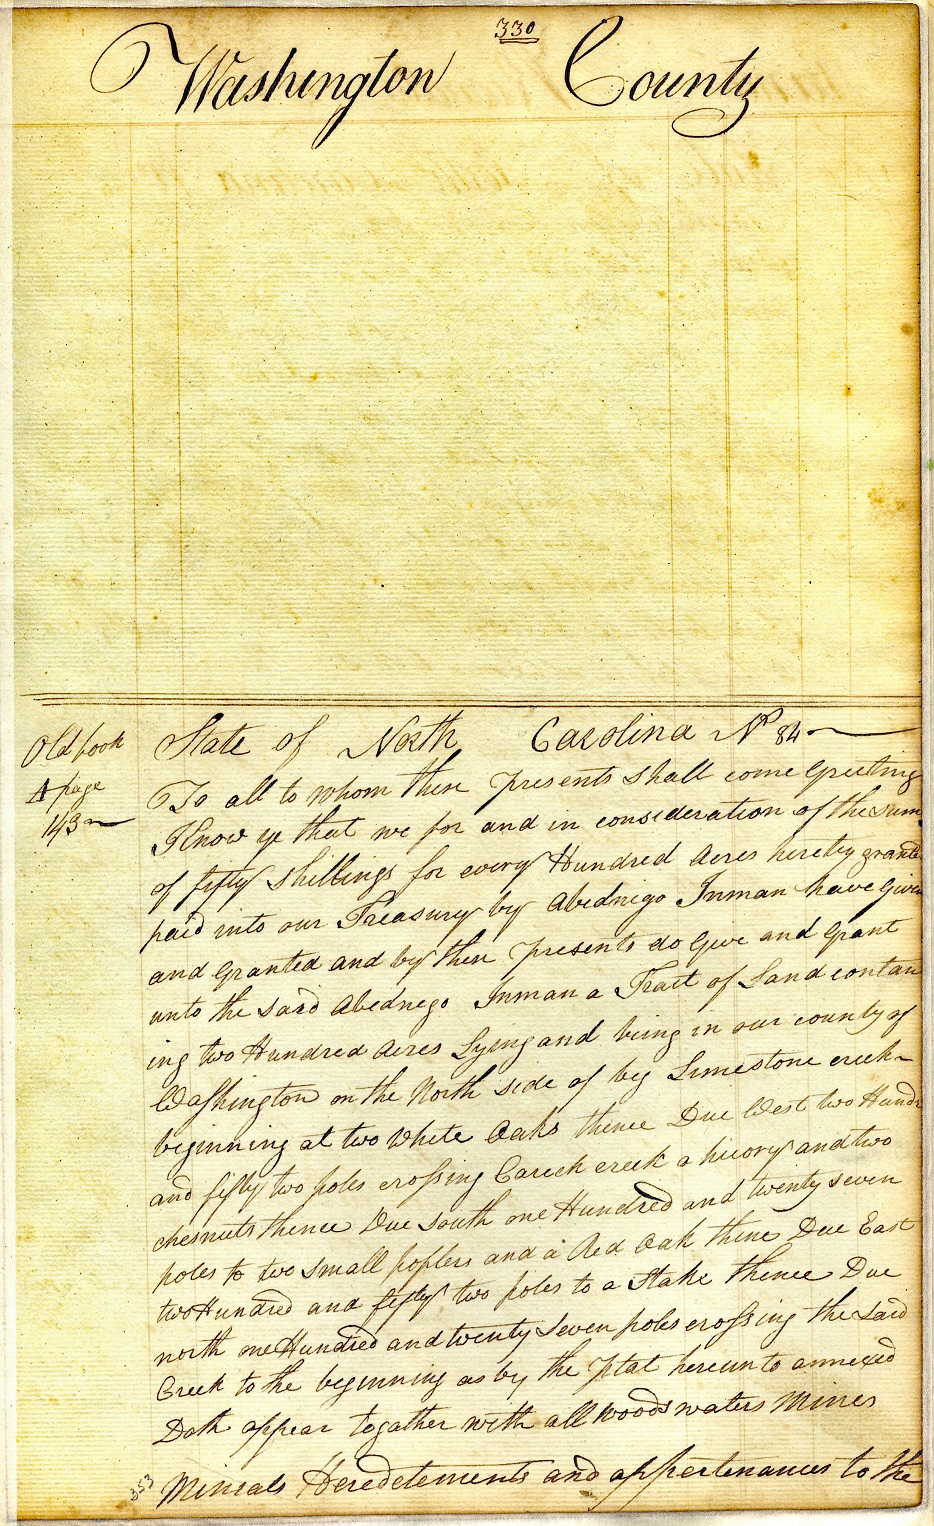 330
Washington County
Old book
A page
143
State of North Carolina No 84
To all to whom these presents shall come Greeting
Know ye that we for and in consideration of the sum
of fifty shillings for every Hundred acres hereby grante
paid into our Treasury by Abednigo Inman have Given
and Granted and by these presents do Give and Grant
unto the said Abednego Inman a Tract of Land contan
ing two Hundred acres Lying and being in our county of
Washington on the North side of big Limestone creek
beginning at two White Oaks thence Due West two Hundr
and fifty two poles crossing creek a hicory and two
chesnuts thence Due South one Hundred and twenty seven
poles to two small poplers and a Red Oak thence Due East
two Hundred and fifty two poles to a Stake thence Due
north one Hundred and twenty seven poles crossing the said
Creek to the beginning as by the plat hereunto annexed
Doth appear togather with all woods waters Mines
Minerals Heredetements and appertenances to the
353